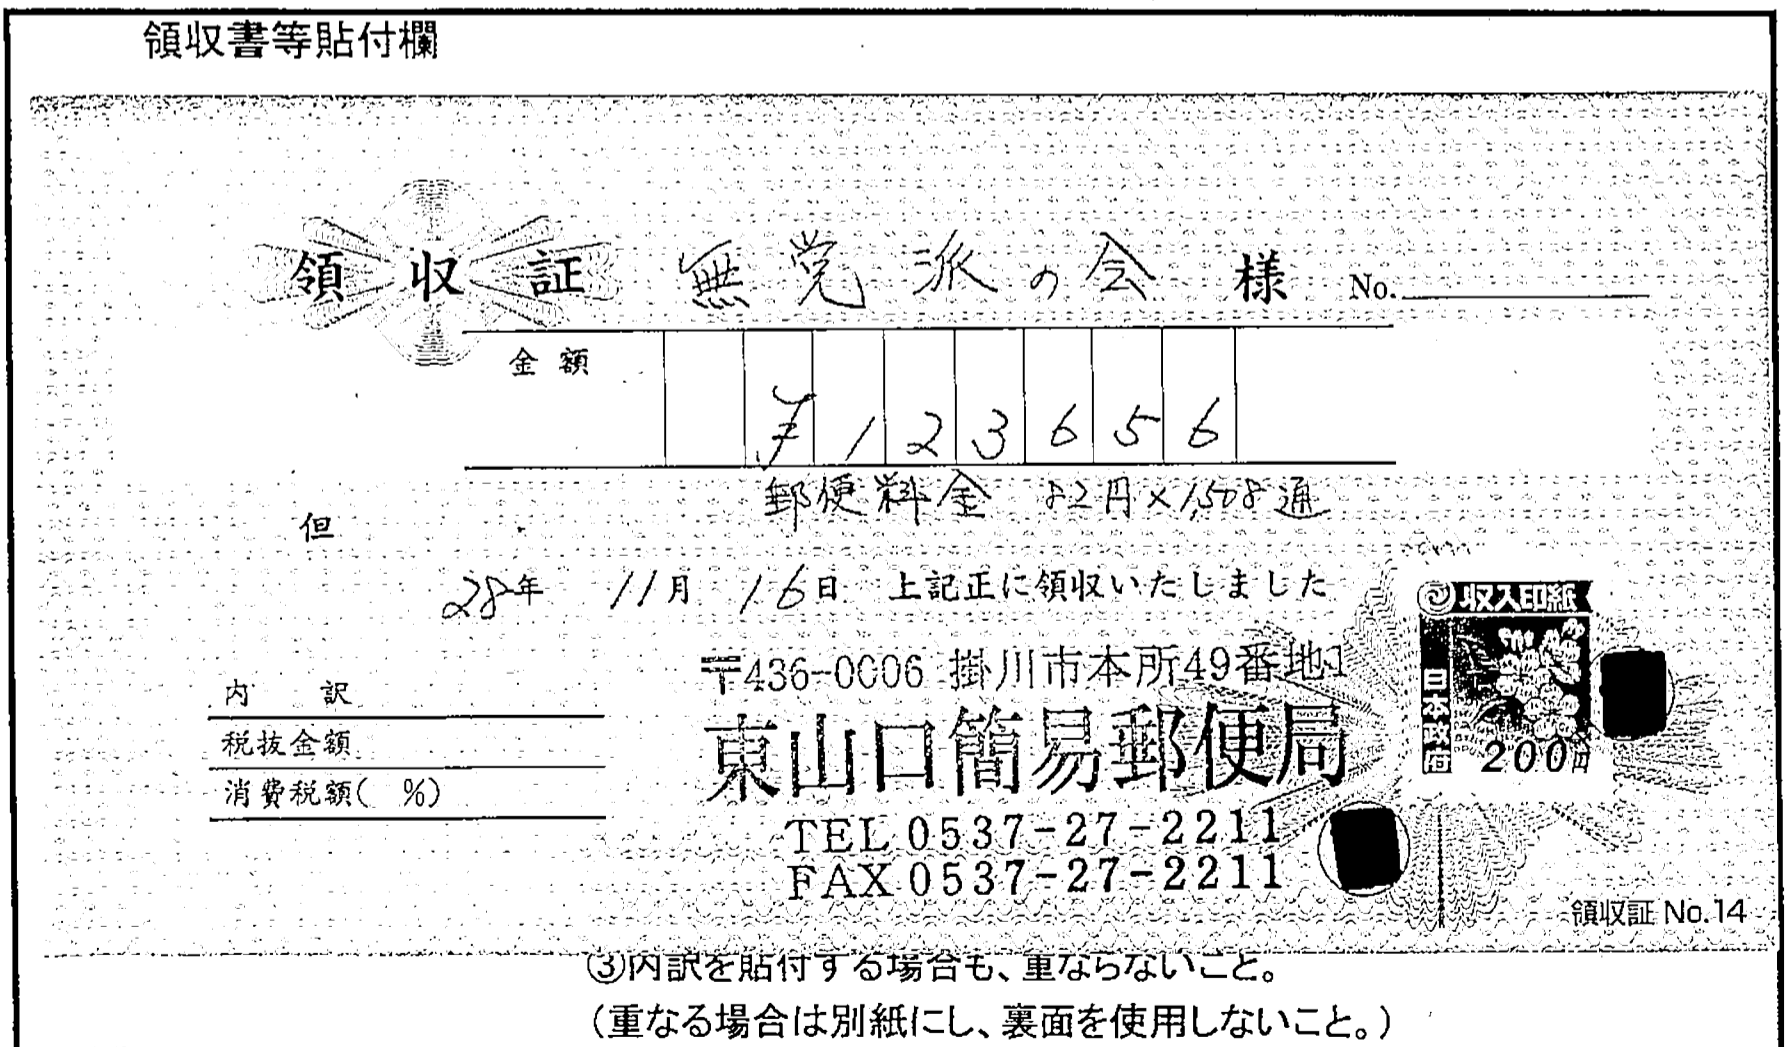 領収書等貼付欄
領収証 無党派の会 様 No.
金額 ¥123656
但 郵便料金 82円×1,508通
28年 11月 16日 上記正に領収いたしました
収入印紙
日本政府
200円
〒436-0006 掛川市本所49番地1
東山口簡易郵便局
TEL 0537-27-2211
FAX 0537-27-2211
内訳
税抜金額
消費税額( %)
領収証 No.14
③内訳を貼付する場合も、重ならないこと。
(重なる場合は別紙にし、裏面を使用しないこと。)